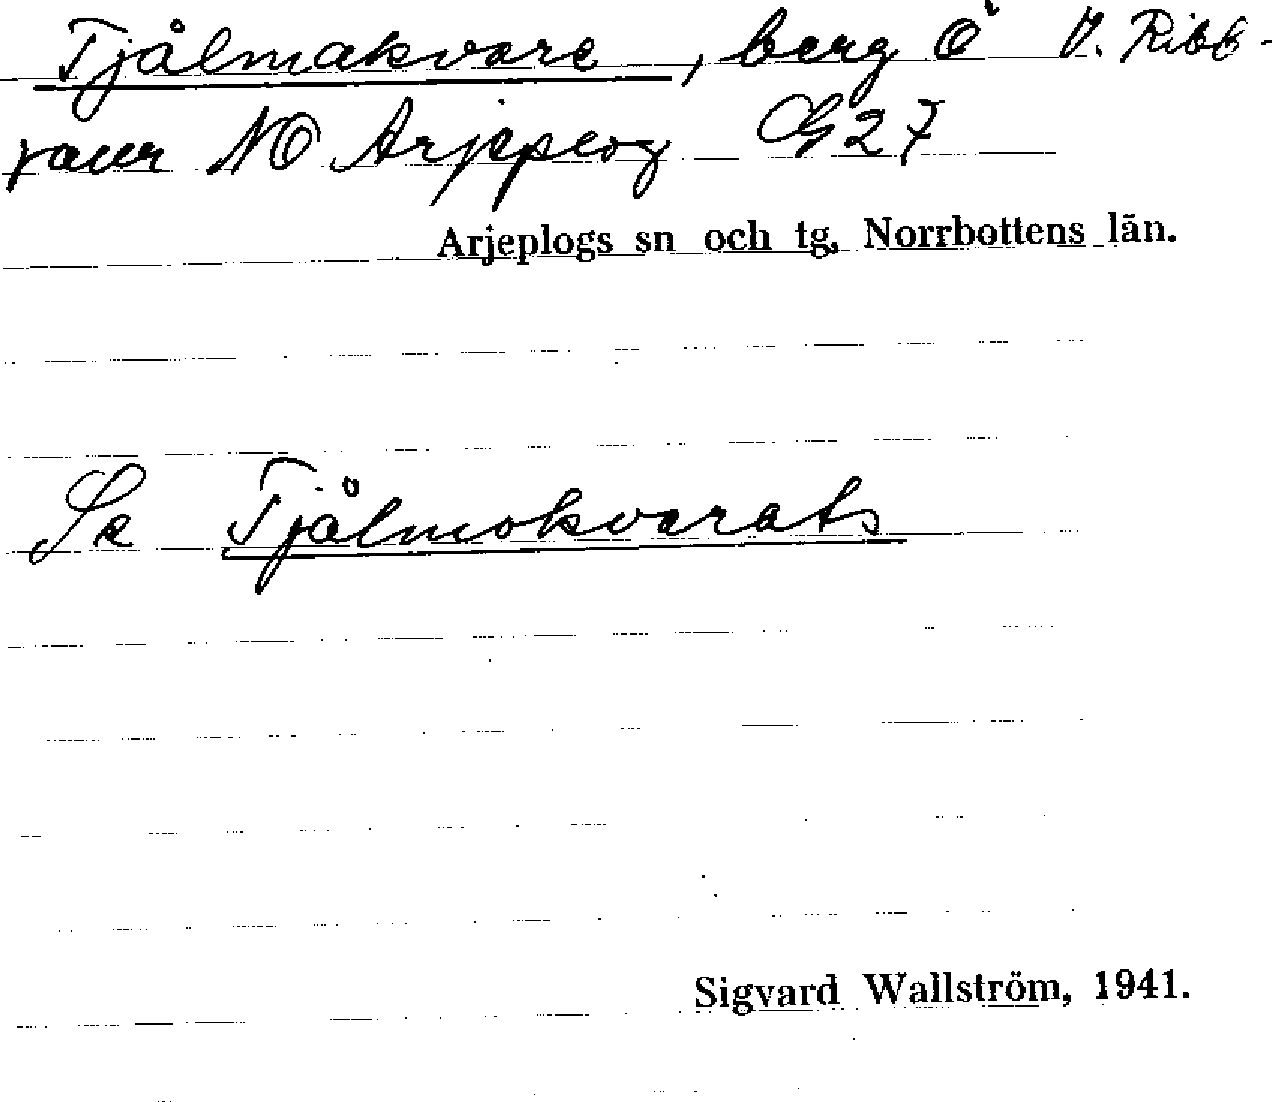 Tjålmakvare, berg Ö V. Ribb-
jaur NO Arjeplog G27
Arjeplogs sn och tg, Norrbottens län.
Se Tjålmokvarats
Sigvard Wallström, 1941.